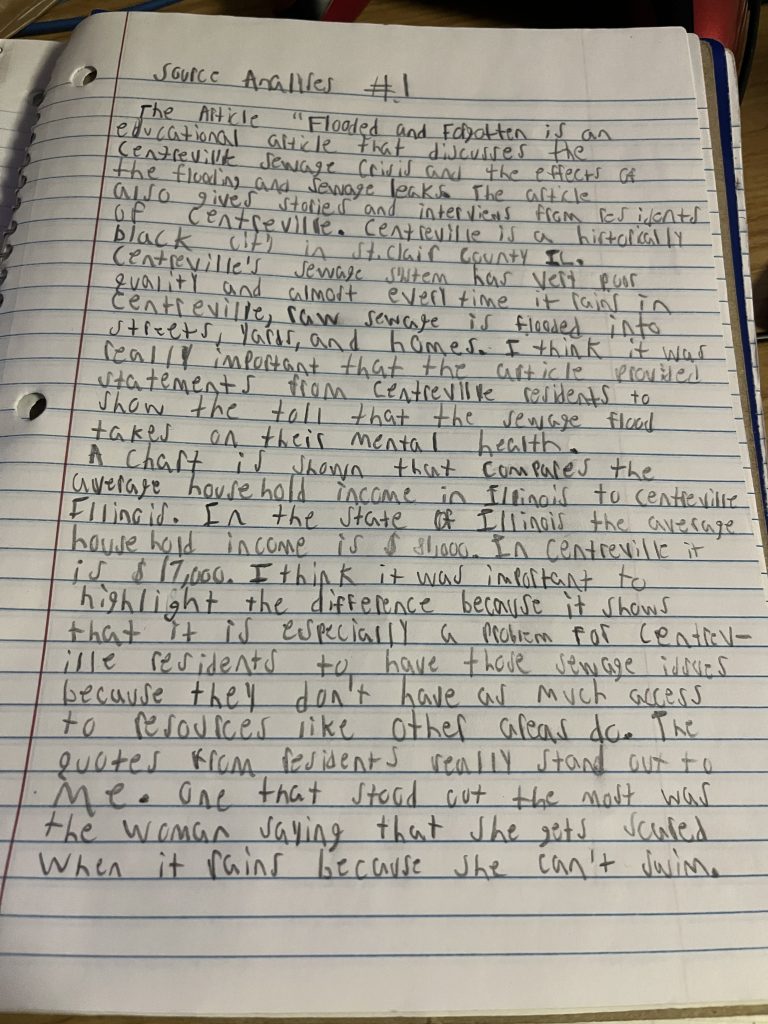 Source Analises #1
The Article "Flooded and Forgotten is an
educational article that discusses the
Centreville sewage crisis and the effects of
the flooding and sewage leaks. The article
also gives stories and interviews from residents
of Centreville. Centreville is a historically
black city in St.Clair county IL.
Centreville's sewage system has very poor
quality and almost every time it rains in
Centreville, raw sewage is flooded into
streets, yards, and homes. I think it was
really important that the article provided
statements from Centreville residents to
show the toll that the sewage flood
takes on their mental health.
A chart is shown that compares the
average household income in Illinois to Centreville
Illinois. In the state of Illinois the average
household income is $ 81,000. In Centreville it
is $ 17,000. I think it was important to
highlight the difference because it shows
that it is especially a problem for Centrev-
ille residents to have those sewage issues
because they don't have as much access
to resources like other areas do. The
quotes from residents really stand out to
me. One that stood out the most was
the woman saying that she gets scared
when it rains because she can't swim.